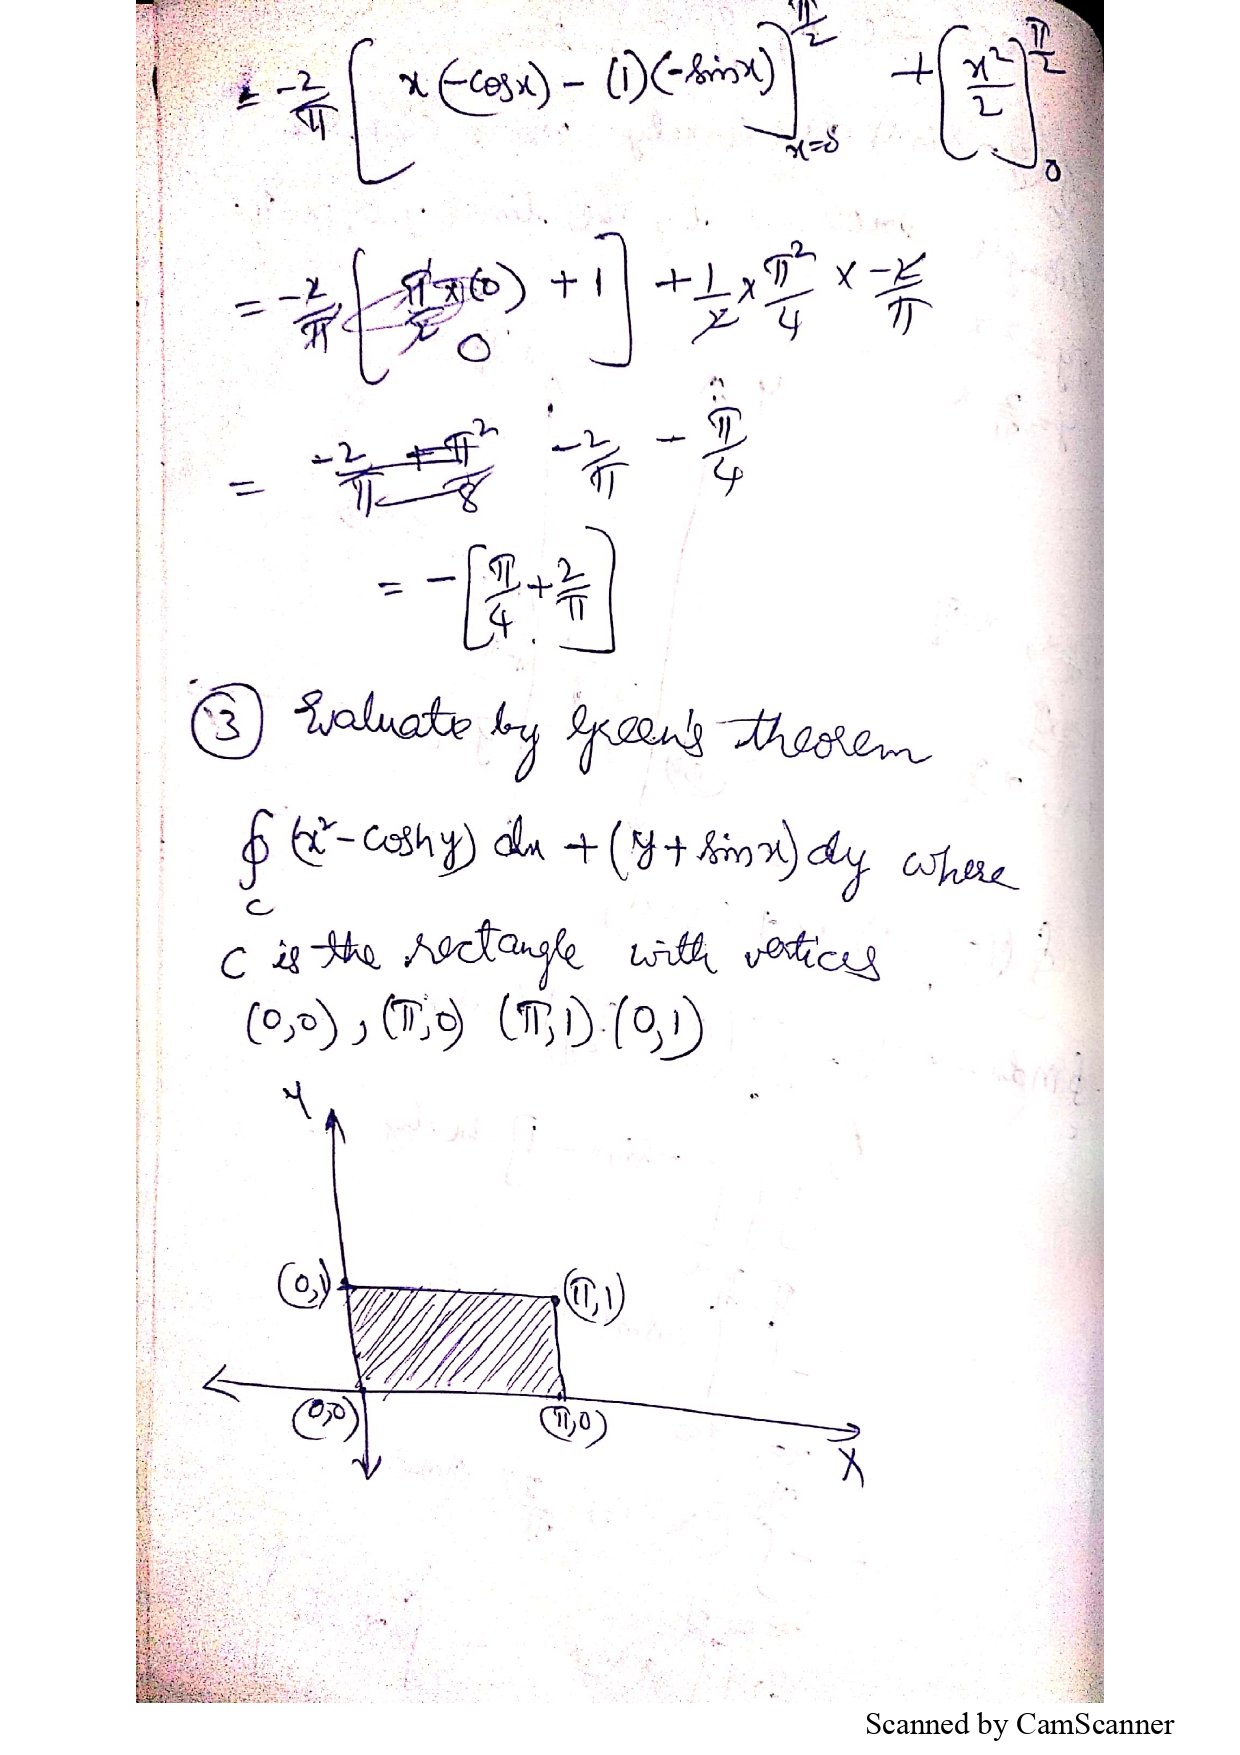 = -2/π [ x(-cosx) - (1)(-sinx) ]_{x=0}^{π/2} + [x²/2]_0^{π/2}
= -2/π [ π/2 x(0) + 1 ] + 1/2 × π²/4 × -2/π
0
= -2/π + π²/8 -2/π - π/4
= -[π/4 + 2/π]
③ Evaluate by Green's theorem
∮_C (x² - coshy) dx + (y + sinx) dy where
C is the rectangle with vertices
(0,0), (π,0) (π,1) (0,1)
Y
(0,1) (π,1)
(0,0) (π,0)
X
Scanned by CamScanner